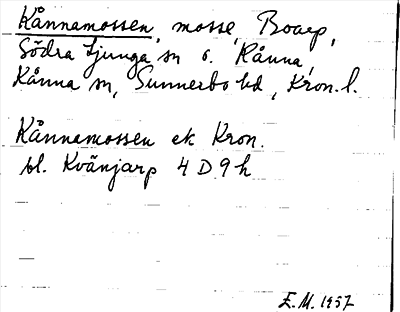 Kånnamossen, mosse, Boarp,
Södra Ljunga sn o. Kånna,
Kånna sn, Sunnerbo hd, Kron. l.
Kånnamossen ek Kron.
bl. Kvänjarp 4 D 9 h
E.M. 1957